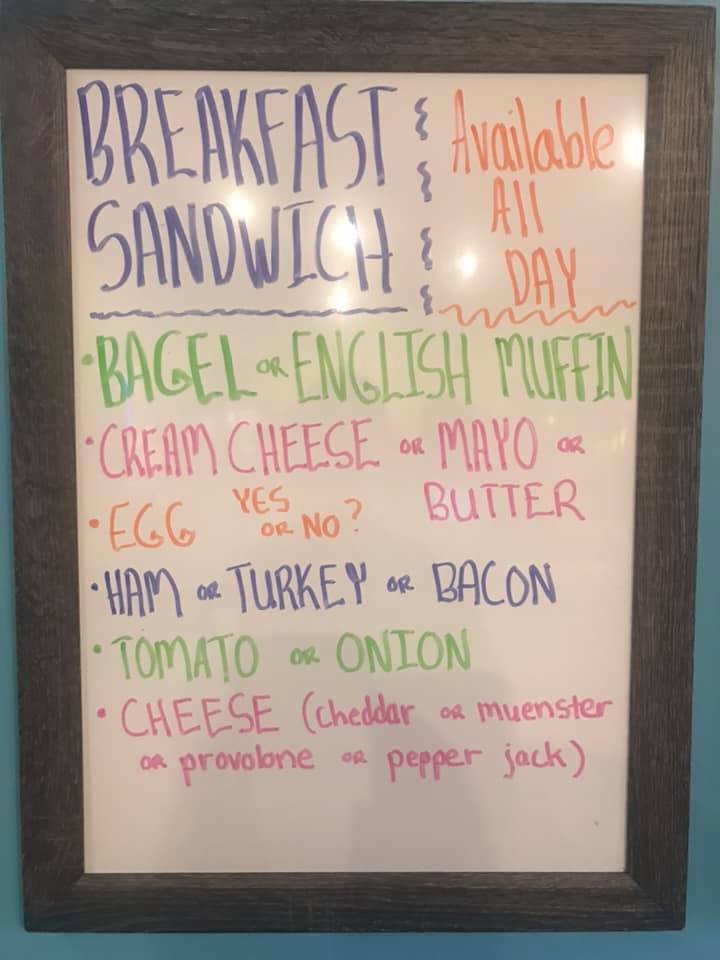 BREAKFAST
SANDWICH
Available
All
DAY
• BAGEL OR ENGLISH MUFFIN
• CREAM CHEESE OR MAYO OR
BUTTER
• EGG YES
OR NO?
• HAM OR TURKEY OR BACON
• TOMATO OR ONION
• CHEESE (cheddar OR muenster
OR provolone OR pepper jack)